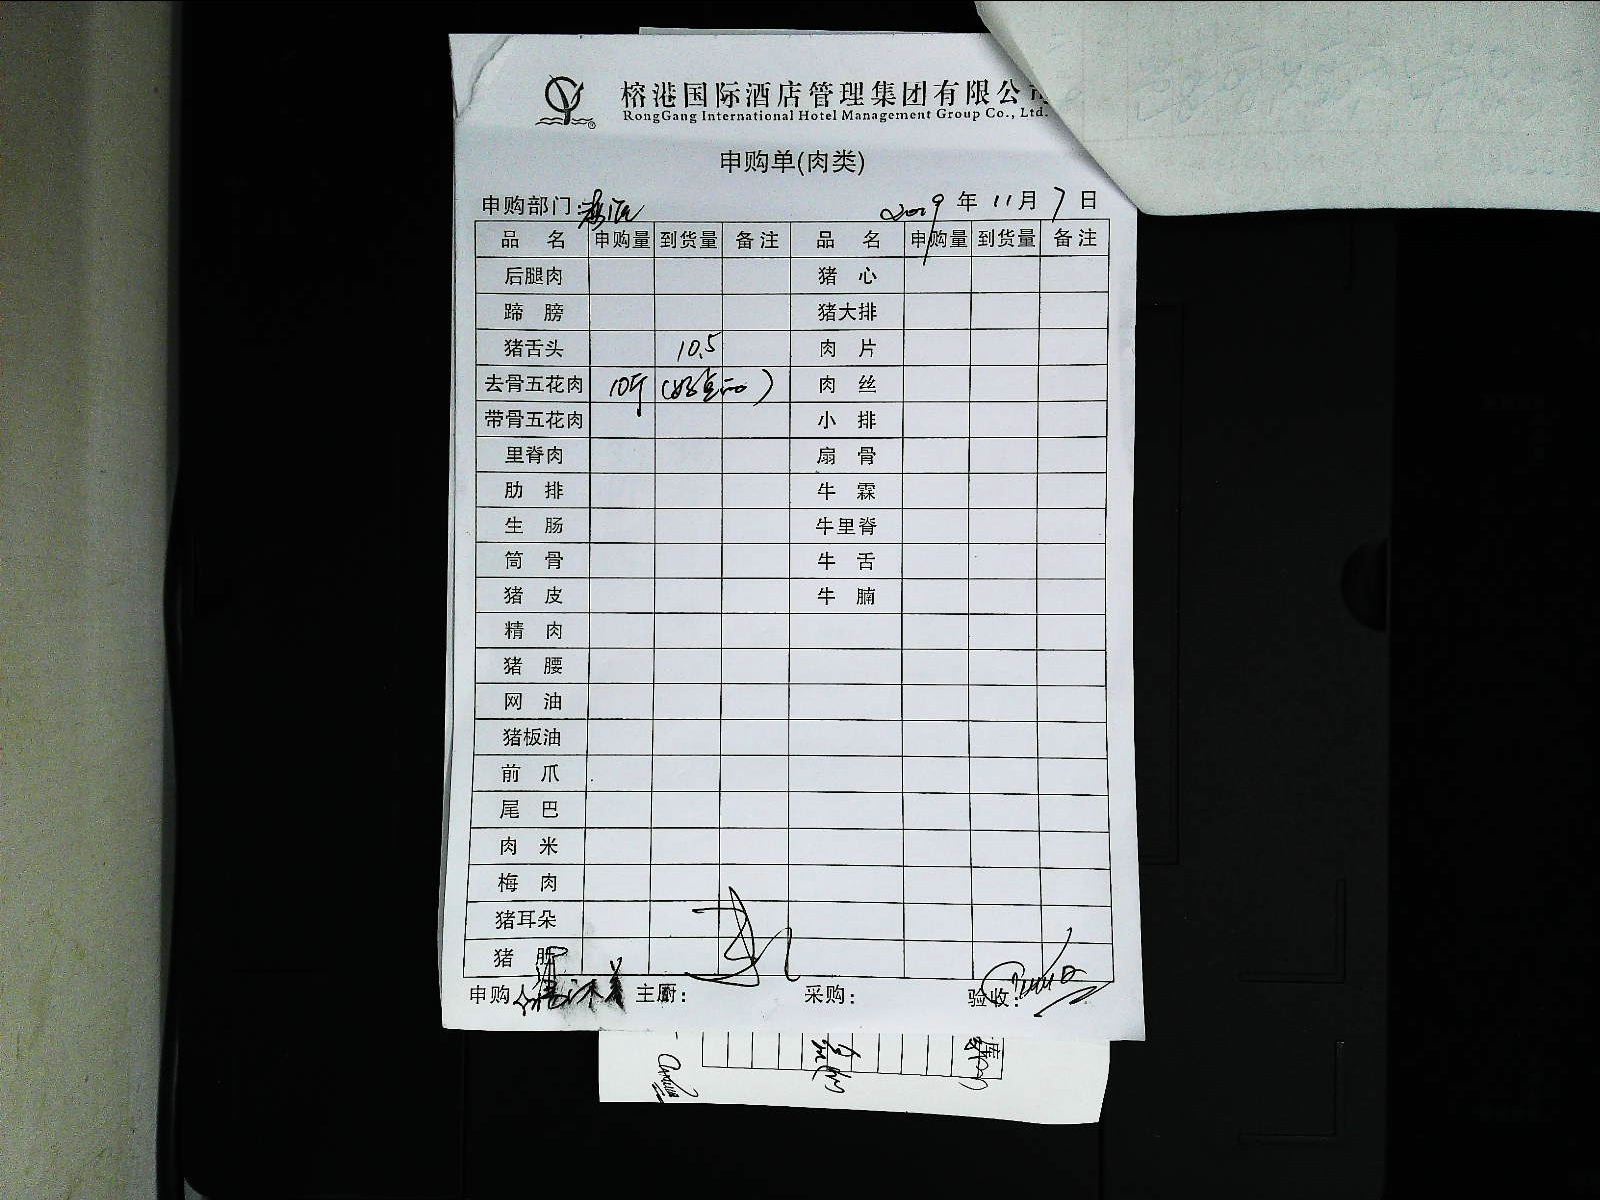 榕港国际酒店管理集团有限公司
RongGang International Hotel Management Group Co., Ltd.
申购单(肉类)
申购部门: 2019 年 11 月 7 日
品 名 申购量 到货量 备注 品 名 申购量 到货量 备注
后腿肉 猪 心
蹄 膀 猪大排
猪舌头 10.5 肉 片
去骨五花肉 10斤 肉 丝
带骨五花肉 小 排
里脊肉 扇 骨
肋 排 牛 霖
生 肠 牛里脊
筒 骨 牛 舌
猪 皮 牛 腩
精 肉
猪 腰
网 油
猪板油
前 爪
尾 巴
肉 米
梅 肉
猪耳朵
猪
申购人 主厨: 采购: 验收: